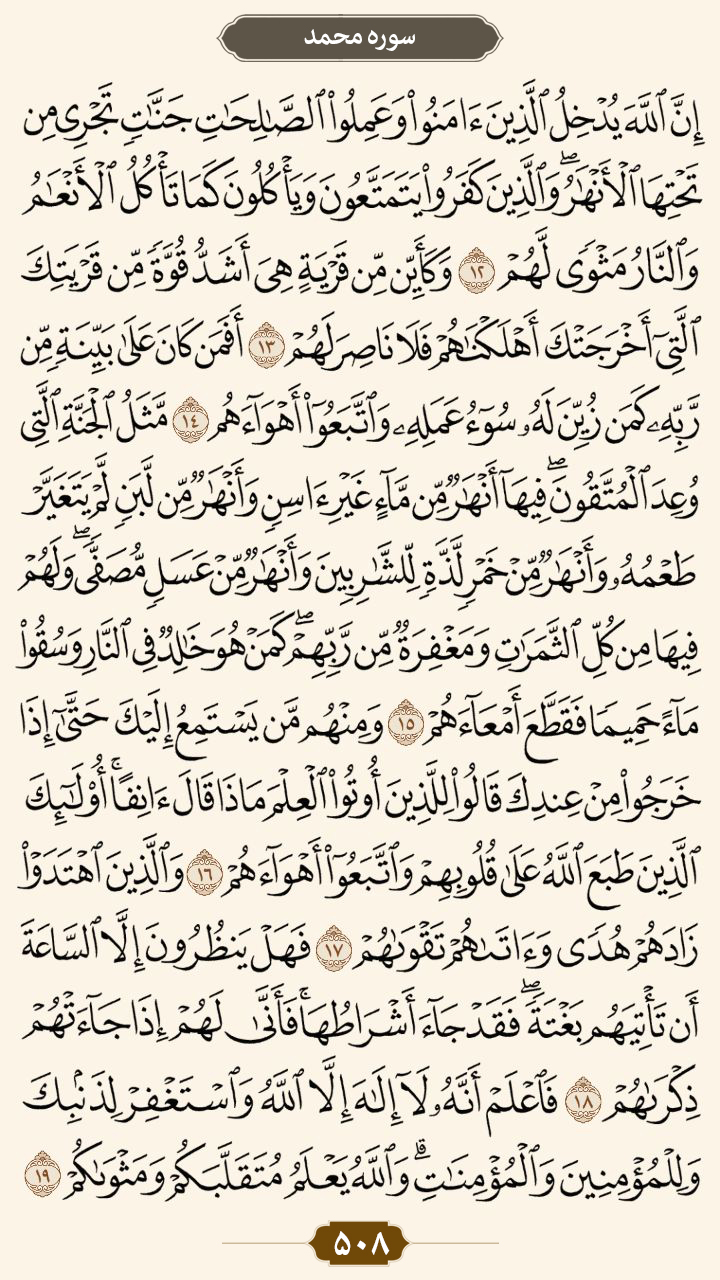 سوره محمد
إِنَّ ٱللَّهَ يُدْخِلُ ٱلَّذِينَ ءَامَنُوا۟ وَعَمِلُوا۟ ٱلصَّـٰلِحَـٰتِ جَنَّـٰتٍ تَجْرِى مِن
تَحْتِهَا ٱلْأَنْهَـٰرُ ۖ وَٱلَّذِينَ كَفَرُوا۟ يَتَمَتَّعُونَ وَيَأْكُلُونَ كَمَا تَأْكُلُ ٱلْأَنْعَـٰمُ
وَٱلنَّارُ مَثْوًى لَّهُمْ ١٢ وَكَأَيِّن مِّن قَرْيَةٍ هِىَ أَشَدُّ قُوَّةً مِّن قَرْيَتِكَ
ٱلَّتِىٓ أَخْرَجَتْكَ أَهْلَكْنَـٰهُمْ فَلَا نَاصِرَ لَهُمْ ١٣ أَفَمَن كَانَ عَلَىٰ بَيِّنَةٍ مِّن
رَّبِّهِۦ كَمَن زُيِّنَ لَهُۥ سُوٓءُ عَمَلِهِۦ وَٱتَّبَعُوٓا۟ أَهْوَآءَهُم ١٤ مَّثَلُ ٱلْجَنَّةِ ٱلَّتِى
وُعِدَ ٱلْمُتَّقُونَ ۖ فِيهَآ أَنْهَـٰرٌ مِّن مَّآءٍ غَيْرِ ءَاسِنٍ وَأَنْهَـٰرٌ مِّن لَّبَنٍ لَّمْ يَتَغَيَّرْ
طَعْمُهُۥ وَأَنْهَـٰرٌ مِّنْ خَمْرٍ لَّذَّةٍ لِّلشَّـٰرِبِينَ وَأَنْهَـٰرٌ مِّنْ عَسَلٍ مُّصَفًّى ۖ وَلَهُمْ
فِيهَا مِن كُلِّ ٱلثَّمَرَٰتِ وَمَغْفِرَةٌ مِّن رَّبِّهِمْ ۖ كَمَنْ هُوَ خَـٰلِدٌ فِى ٱلنَّارِ وَسُقُوا۟
مَآءً حَمِيمًا فَقَطَّعَ أَمْعَآءَهُمْ ١٥ وَمِنْهُم مَّن يَسْتَمِعُ إِلَيْكَ حَتَّىٰٓ إِذَا
خَرَجُوا۟ مِنْ عِندِكَ قَالُوا۟ لِلَّذِينَ أُوتُوا۟ ٱلْعِلْمَ مَاذَا قَالَ ءَانِفًا ۚ أُو۟لَـٰٓئِكَ
ٱلَّذِينَ طَبَعَ ٱللَّهُ عَلَىٰ قُلُوبِهِمْ وَٱتَّبَعُوٓا۟ أَهْوَآءَهُمْ ١٦ وَٱلَّذِينَ ٱهْتَدَوْا۟
زَادَهُمْ هُدًى وَءَاتَىٰهُمْ تَقْوَىٰهُمْ ١٧ فَهَلْ يَنظُرُونَ إِلَّا ٱلسَّاعَةَ
أَن تَأْتِيَهُم بَغْتَةً ۖ فَقَدْ جَآءَ أَشْرَاطُهَا ۚ فَأَنَّىٰ لَهُمْ إِذَا جَآءَتْهُمْ
ذِكْرَىٰهُمْ ١٨ فَٱعْلَمْ أَنَّهُۥ لَآ إِلَـٰهَ إِلَّا ٱللَّهُ وَٱسْتَغْفِرْ لِذَنۢبِكَ
وَلِلْمُؤْمِنِينَ وَٱلْمُؤْمِنَـٰتِ ۗ وَٱللَّهُ يَعْلَمُ مُتَقَلَّبَكُمْ وَمَثْوَىٰكُمْ ١٩
۵۰۸